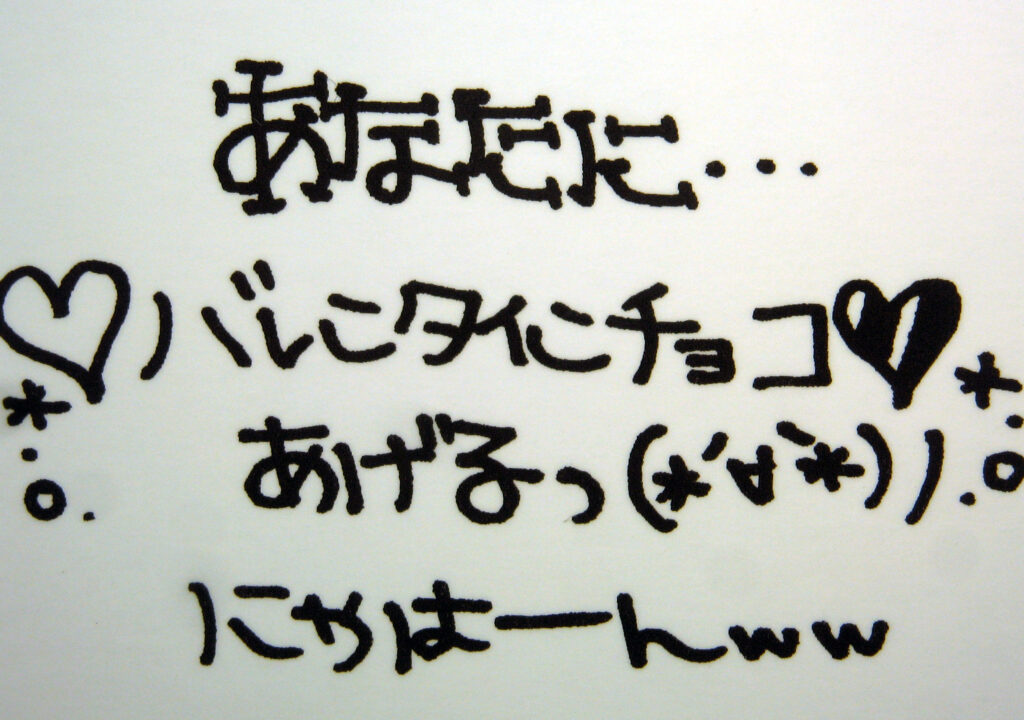 あなたに・・・
♡ノバレこタイにチョコ♥
あげるっ(*´∀`*)ノ
にゃはーんww